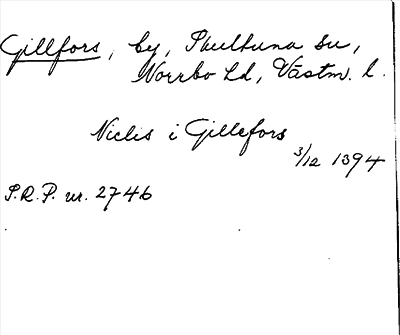 Gillfors, by, Skultuna sn,
Norrbo hd, Västm. l.
Niclis i Gillefors
3/12 1394
P.R.P. nr. 2746